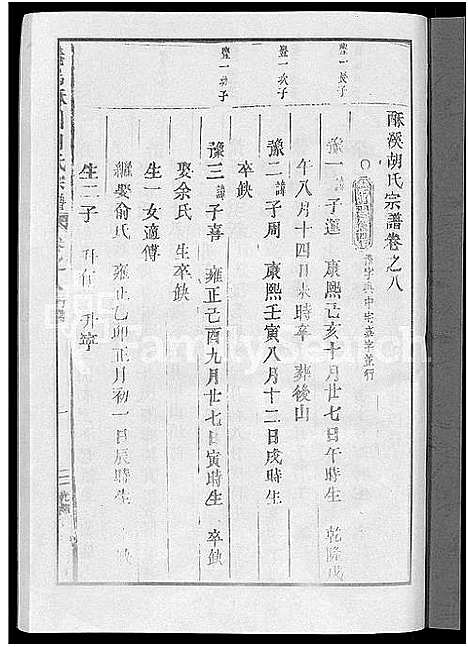 酥溪胡氏宗譜卷之八
豫字與中宅嘉字並行
豐一長子
豫一諱子達 康熙己亥十月廿七日午時生 乾隆戊
午八月十四日未時卒 葬後山
豐一次子
豫二諱子周 康熙壬寅八月十二日戌時生
卒缺
豐一三子
豫三諱子喜 雍正己酉九月廿七日寅時生 卒缺
娶余氏 生卒缺
生一女適傅
繼娶俞氏 雍正乙卯正月初一日辰時生 缺
生二子 升有 升寧
FamilySearch